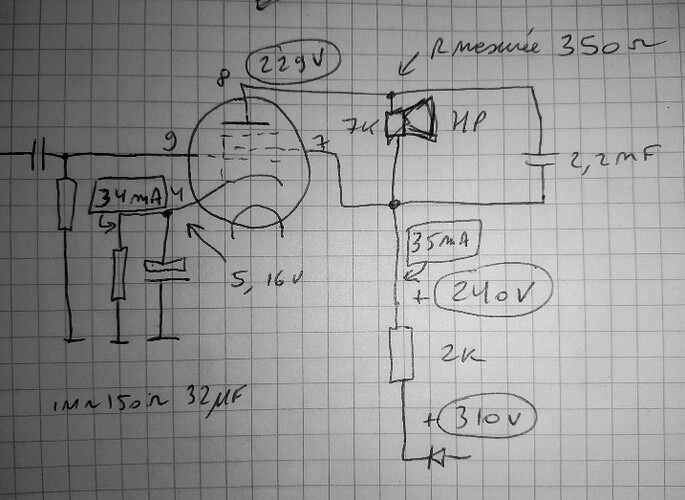 R mesurée 350Ω
8 229V
7K HP
9 7
2,2mF
34mA 4
35mA
5,16V
+ 240V
2K
1M~150Ω 32µF
+ 310V